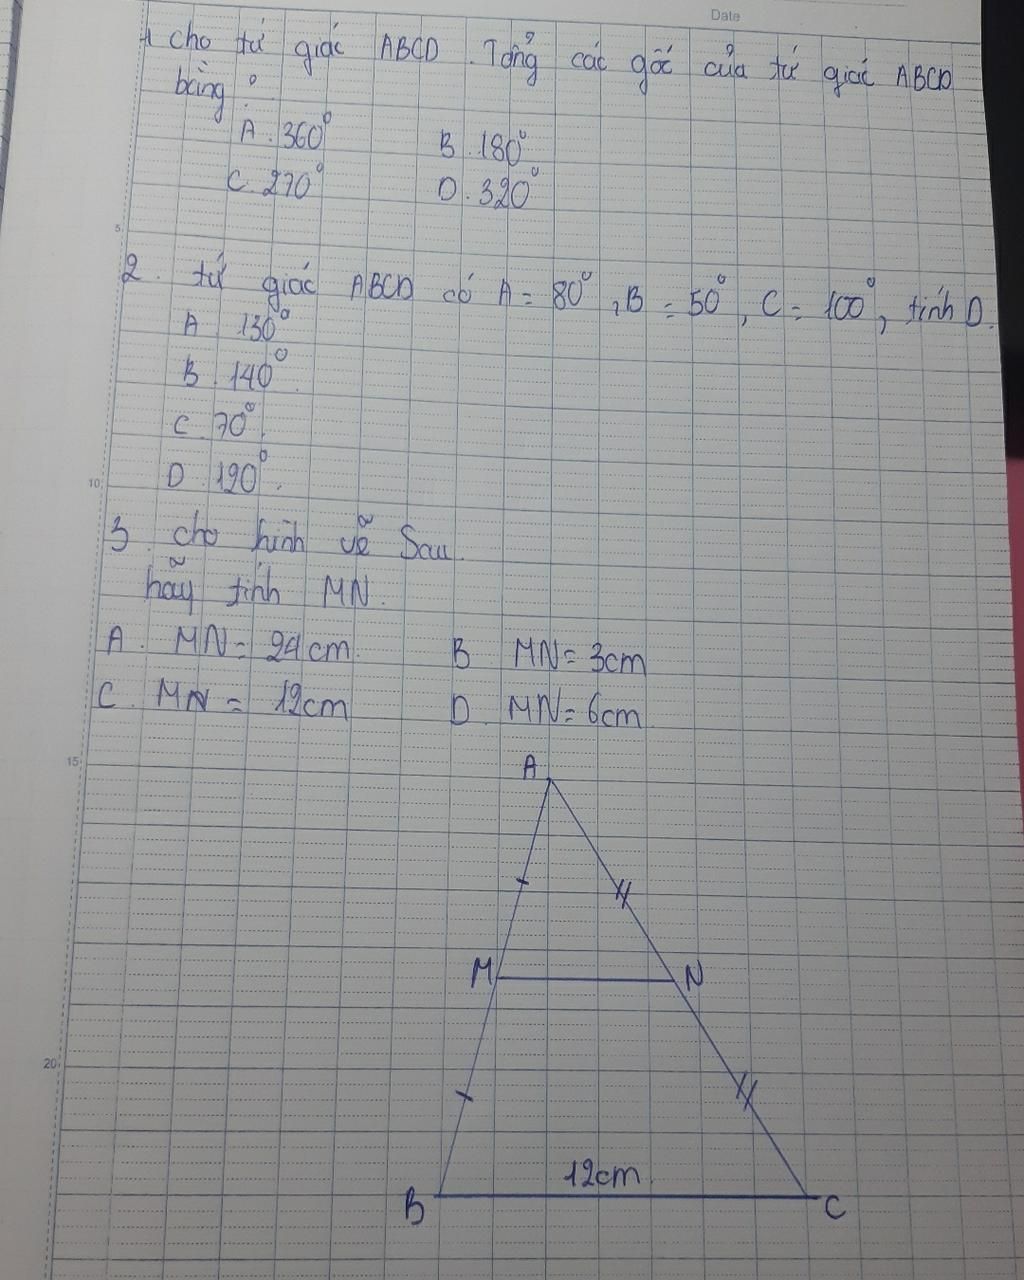 Date
1 cho tứ giác ABCD. Tổng các góc của tứ giác ABCD
bằng :
A. 360° B. 180°
C. 270° D. 320°
5
2. tứ giác ABCD có A = 80°, B = 50°, C = 100°, tính D.
A 130°
B 140°
C. 70°.
10 D. 190°.
3. cho hình vẽ Sau.
hãy tính MN.
A. MN= 24cm. B MN= 3cm
C. MN = 12cm D. MN= 6cm
15
A
M N
20
12cm
B C